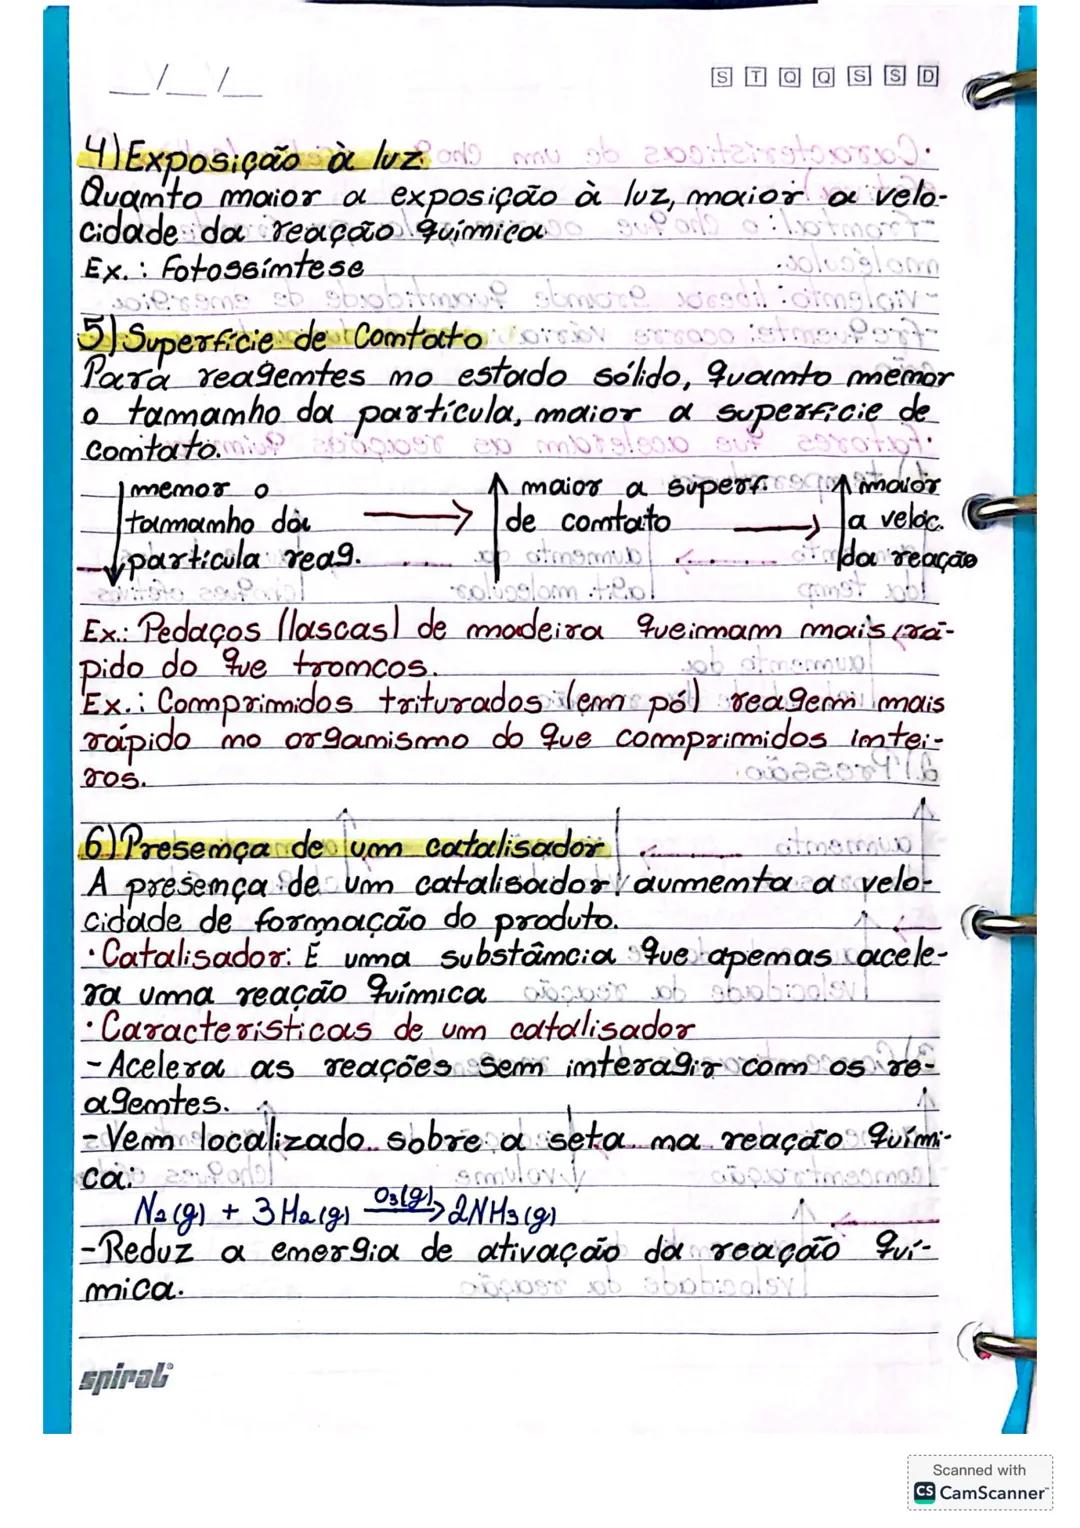 __/__/__
S T Q Q S S D
4) Exposição à luz
Quanto maior a exposição à luz, maior a velo-
cidade da reação química
Ex.: Fotossíntese
5) Superfície de Contato
Para reagentes no estado sólido, quanto menor
o tamanho da partícula, maior a superfície de
contato.
↓ menor o tamanho da partícula reag. → ↑ maior a superf. de contato → ↑ maior a veloc. da reação
Ex.: Pedaços (lascas) de madeira queimam mais rá-
pido do que troncos.
Ex.: Comprimidos triturados (em pó) reagem mais
rápido no organismo do que comprimidos intei-
ros.
6) Presença de um catalisador
A presença de um catalisador aumenta a velo-
cidade de formação do produto.
·Catalisador: É uma substância que apenas acele-
ra uma reação química
·Características de um catalisador
-Acelera as reações sem interagir com os re-
agentes.
-Vem localizado sobre a seta na reação quími-
ca:
N₂(g) + 3H₂(g) —O₃(g)→ 2NH₃(g)
-Reduz a energia de ativação da reação quí-
mica.
spiral®
Scanned with
CS CamScanner™